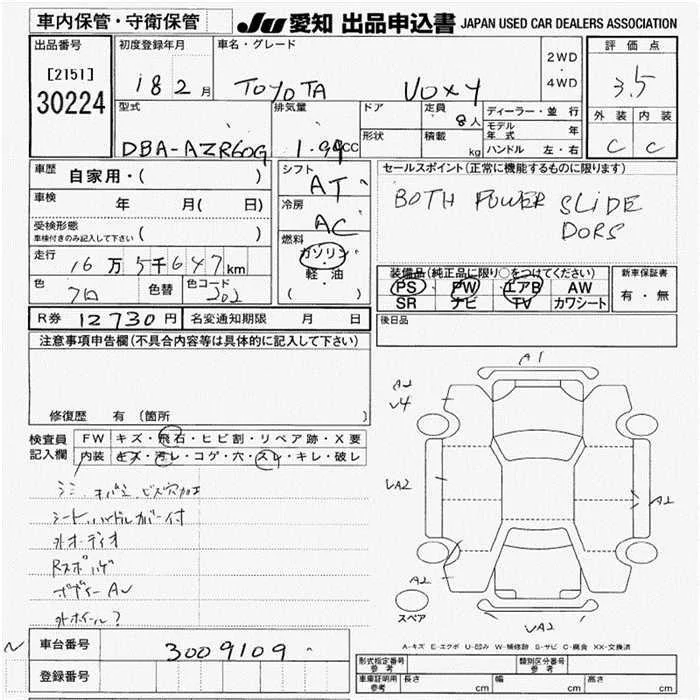 車内保管・守衛保管
JU 愛知 出品申込書 JAPAN USED CAR DEALERS ASSOCIATION
出品番号
[2151]
30224
初度登録年月
18 2 月
車名・グレード
TOYOTA VOXY
2WD
・
4WD
評価点
3.5
外装 内装
C C
型式
DBA-AZR60G
排気量
1.99cc
ドア
形状
定員
8人
積載
kg
ディーラー・並行
モデル年式 年
ハンドル 左・右
車歴
自家用・( )
車検 年 月( 日)
受検形態
車検付きのみ記入して下さい ( )
走行
16万5千647km
色
クロ
色替
色コード
202
シフト
AT
冷房
AC
燃料
ガソリン
軽・油
( )
セールスポイント(正常に機能するものに限ります)
BOTH POWER SLIDE
DORS
装備品(純正品に限り○をつけてください)
PS PW エアB AW
SR ナビ TV カワシート
新車保証書
有・無
後日品
R券 12730円 名変通知期限 月 日
注意事項申告欄(不具合内容等は具体的に記入して下さい)
修復歴 有(箇所 )
検査員
記入欄
FW キズ・飛石・ヒビ割・リペア跡・X要
内装 キズ・汚レ・コゲ・穴・スレ・キレ・破レ
シミ ビス穴
シート、ハンドルカバー付
外オーディオ
ボディーAU
外ホイール?
A1
A2
V4
VA2
A2
A2
VA2
スペア
A-キズ E-エクボ U-凹み W-補修跡 S-サビ C-腐食 XX-交換済
車台番号 3009109
登録番号
形式指定番号
参考
類別区分番号
参考
車庫証明用
参考
長さ cm 幅 cm 高さ cm